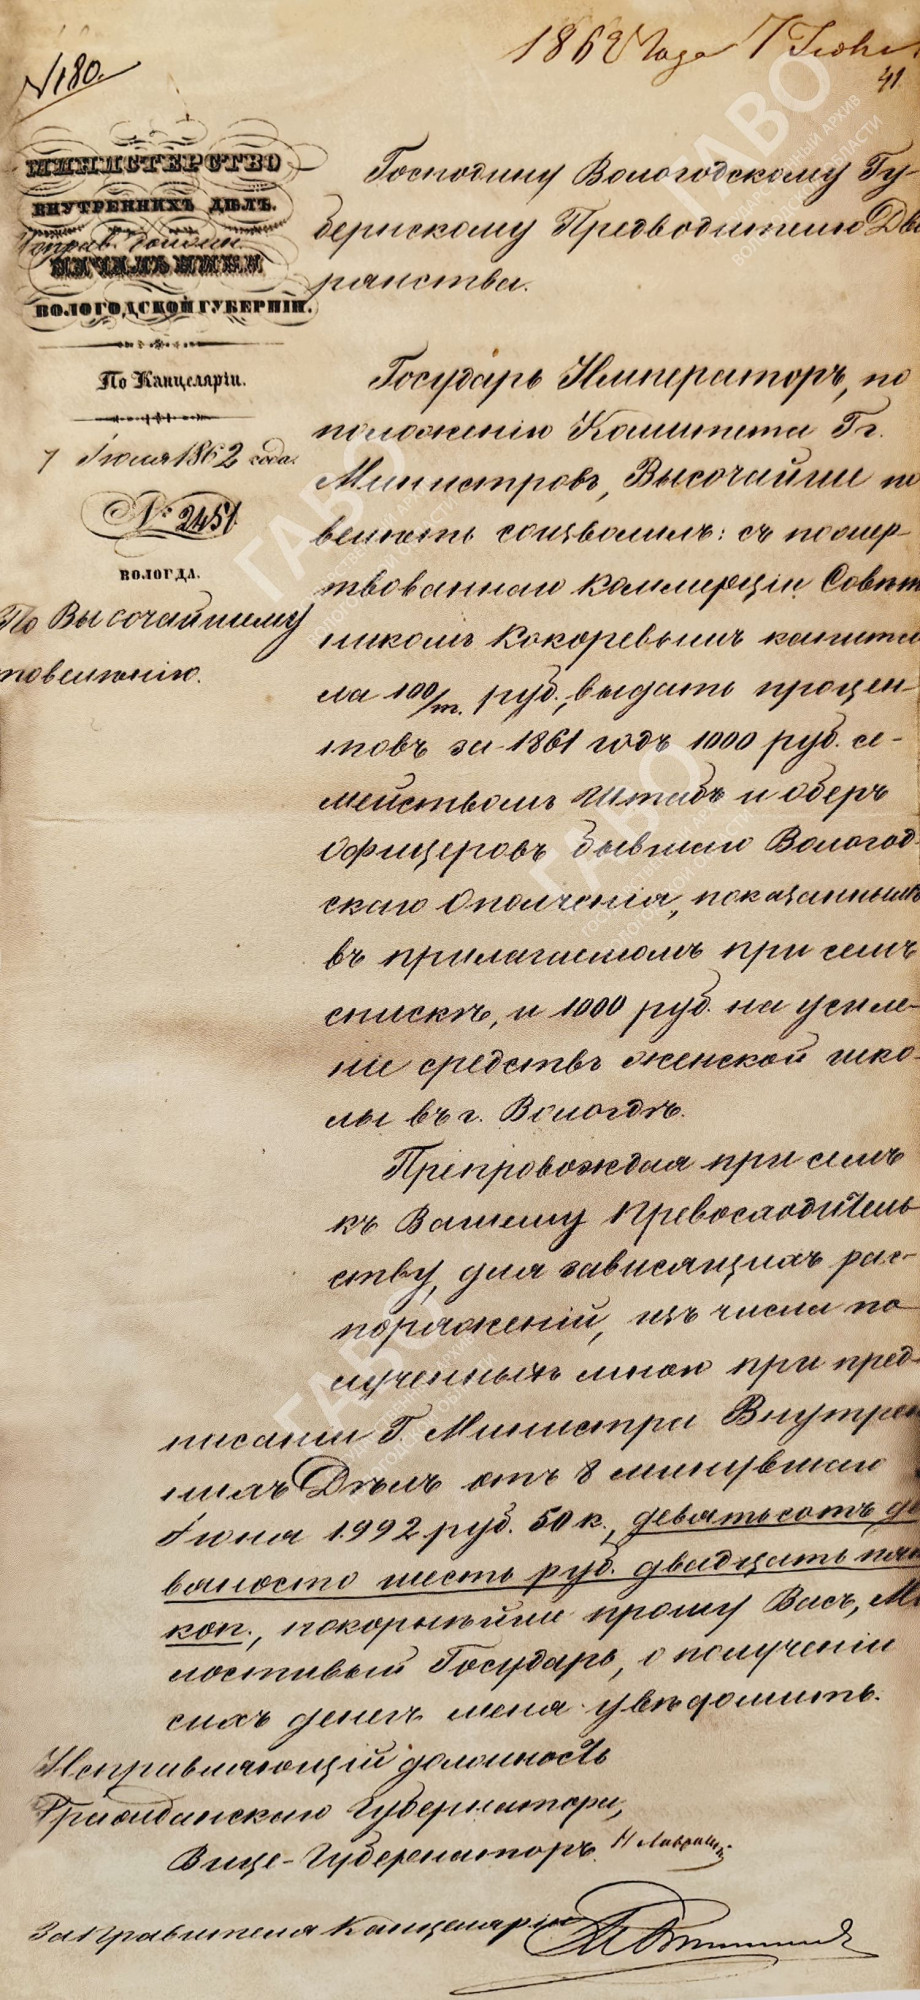 № 180.
1862 Года 7 Июля
41.
МИНИСТЕРСТВО
ВНУТРЕННИХЪ ДѢЛЪ.
Исправ. должн.
НАЧАЛЬНИКА
ВОЛОГОДСКОЙ ГУБЕРНІИ.
По Канцеляріи.
7 Іюля 1862 года.
№ 2451
ВОЛОГДА.
По Высочайшему
повелѣнію.
Господину Вологодскому Гу-
бернскому Предводителю Дво
рянства.
Государь Императоръ, по
положенію Комитета Гг.
Министровъ, Высочайше по
велѣть соизволилъ: съ пожер-
твованнаго коммерціи Совѣт
никомъ Кокоревымъ капита
ла 100/т. руб., выдать процен-
товъ за 1861 годъ 1000 руб. се-
мействомъ Штабъ и оберъ
офицеровъ бывшаго Вологод-
скаго Ополченія, показаннымъ
въ прилагаемомъ при семъ
спискѣ, и 1000 руб. на усиле-
ніе средствъ женской шко-
лы въ г. Вологдѣ.
Препровождая при семъ
къ Вашему Превосходитель
ству, для зависящихъ рас-
поряженій, изъ числа по
лученныхъ мною при пред-
писаніи Г. Министра Внутрен
нихъ Дѣлъ отъ 8 минувшаго
Іюня 1.992 руб. 50 к., девятьсотъ де
вяносто шесть руб. двадцать пять
коп., покорнѣйше прошу Васъ, Ми
лостивый Государь, о полученіи
сихъ денегъ меня увѣдомить.
Исправляющій должность
Гражданскаго Губернатора,
Вице-Губернаторъ
За Правителя Канцеляріи
ГАВО
ГАВО
ГАВО
ГАВО